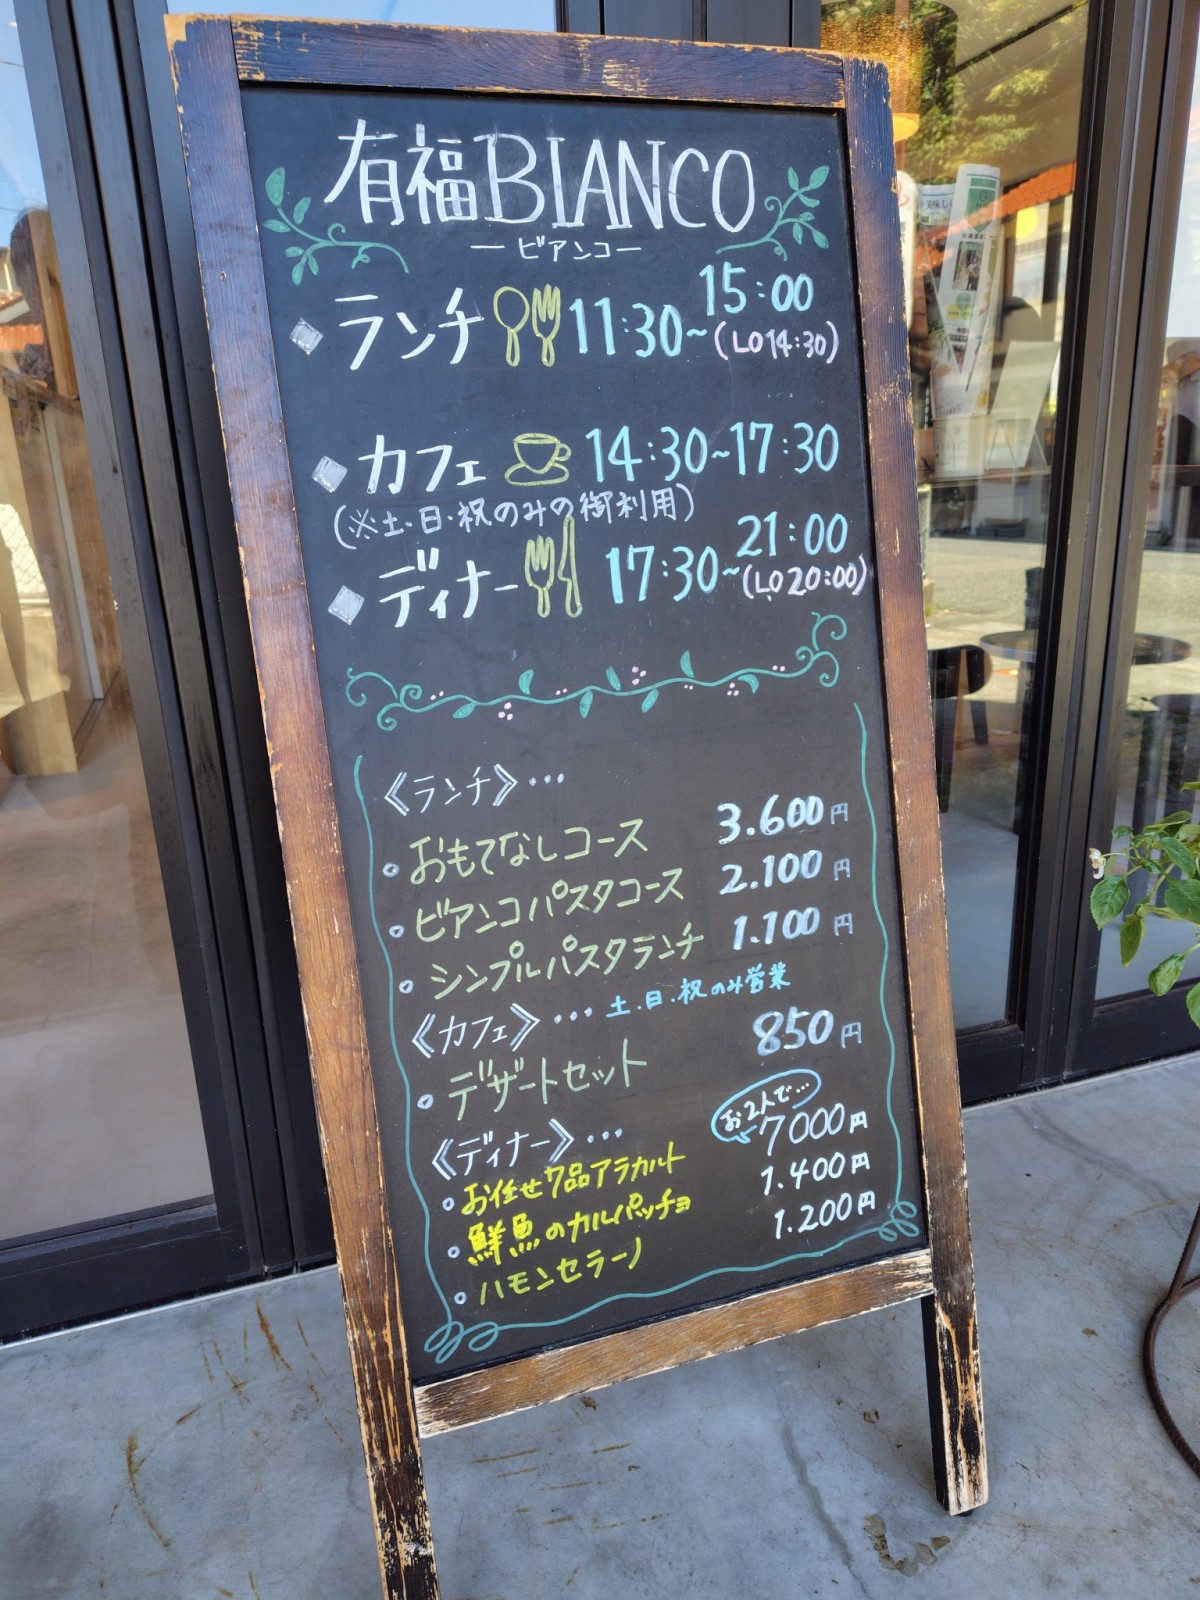 有福BIANCO
ービアンコー
◆ランチ 11:30~15:00
(LO14:30)
◆カフェ 14:30~17:30
(※土・日・祝のみの御利用)
◆ディナー 17:30~21:00
(LO20:00)
《ランチ》・・・
・おもてなしコース 3.600円
・ビアンコパスタコース 2.100円
・シンプルパスタランチ 1.100円
《カフェ》・・・土・日・祝のみ営業
・デザートセット 850円
《ディナー》・・・
お2人で…
・お任せ7品アラカルト 7000円
・鮮魚のカルパッチョ 1.400円
・ハモンセラーノ 1.200円